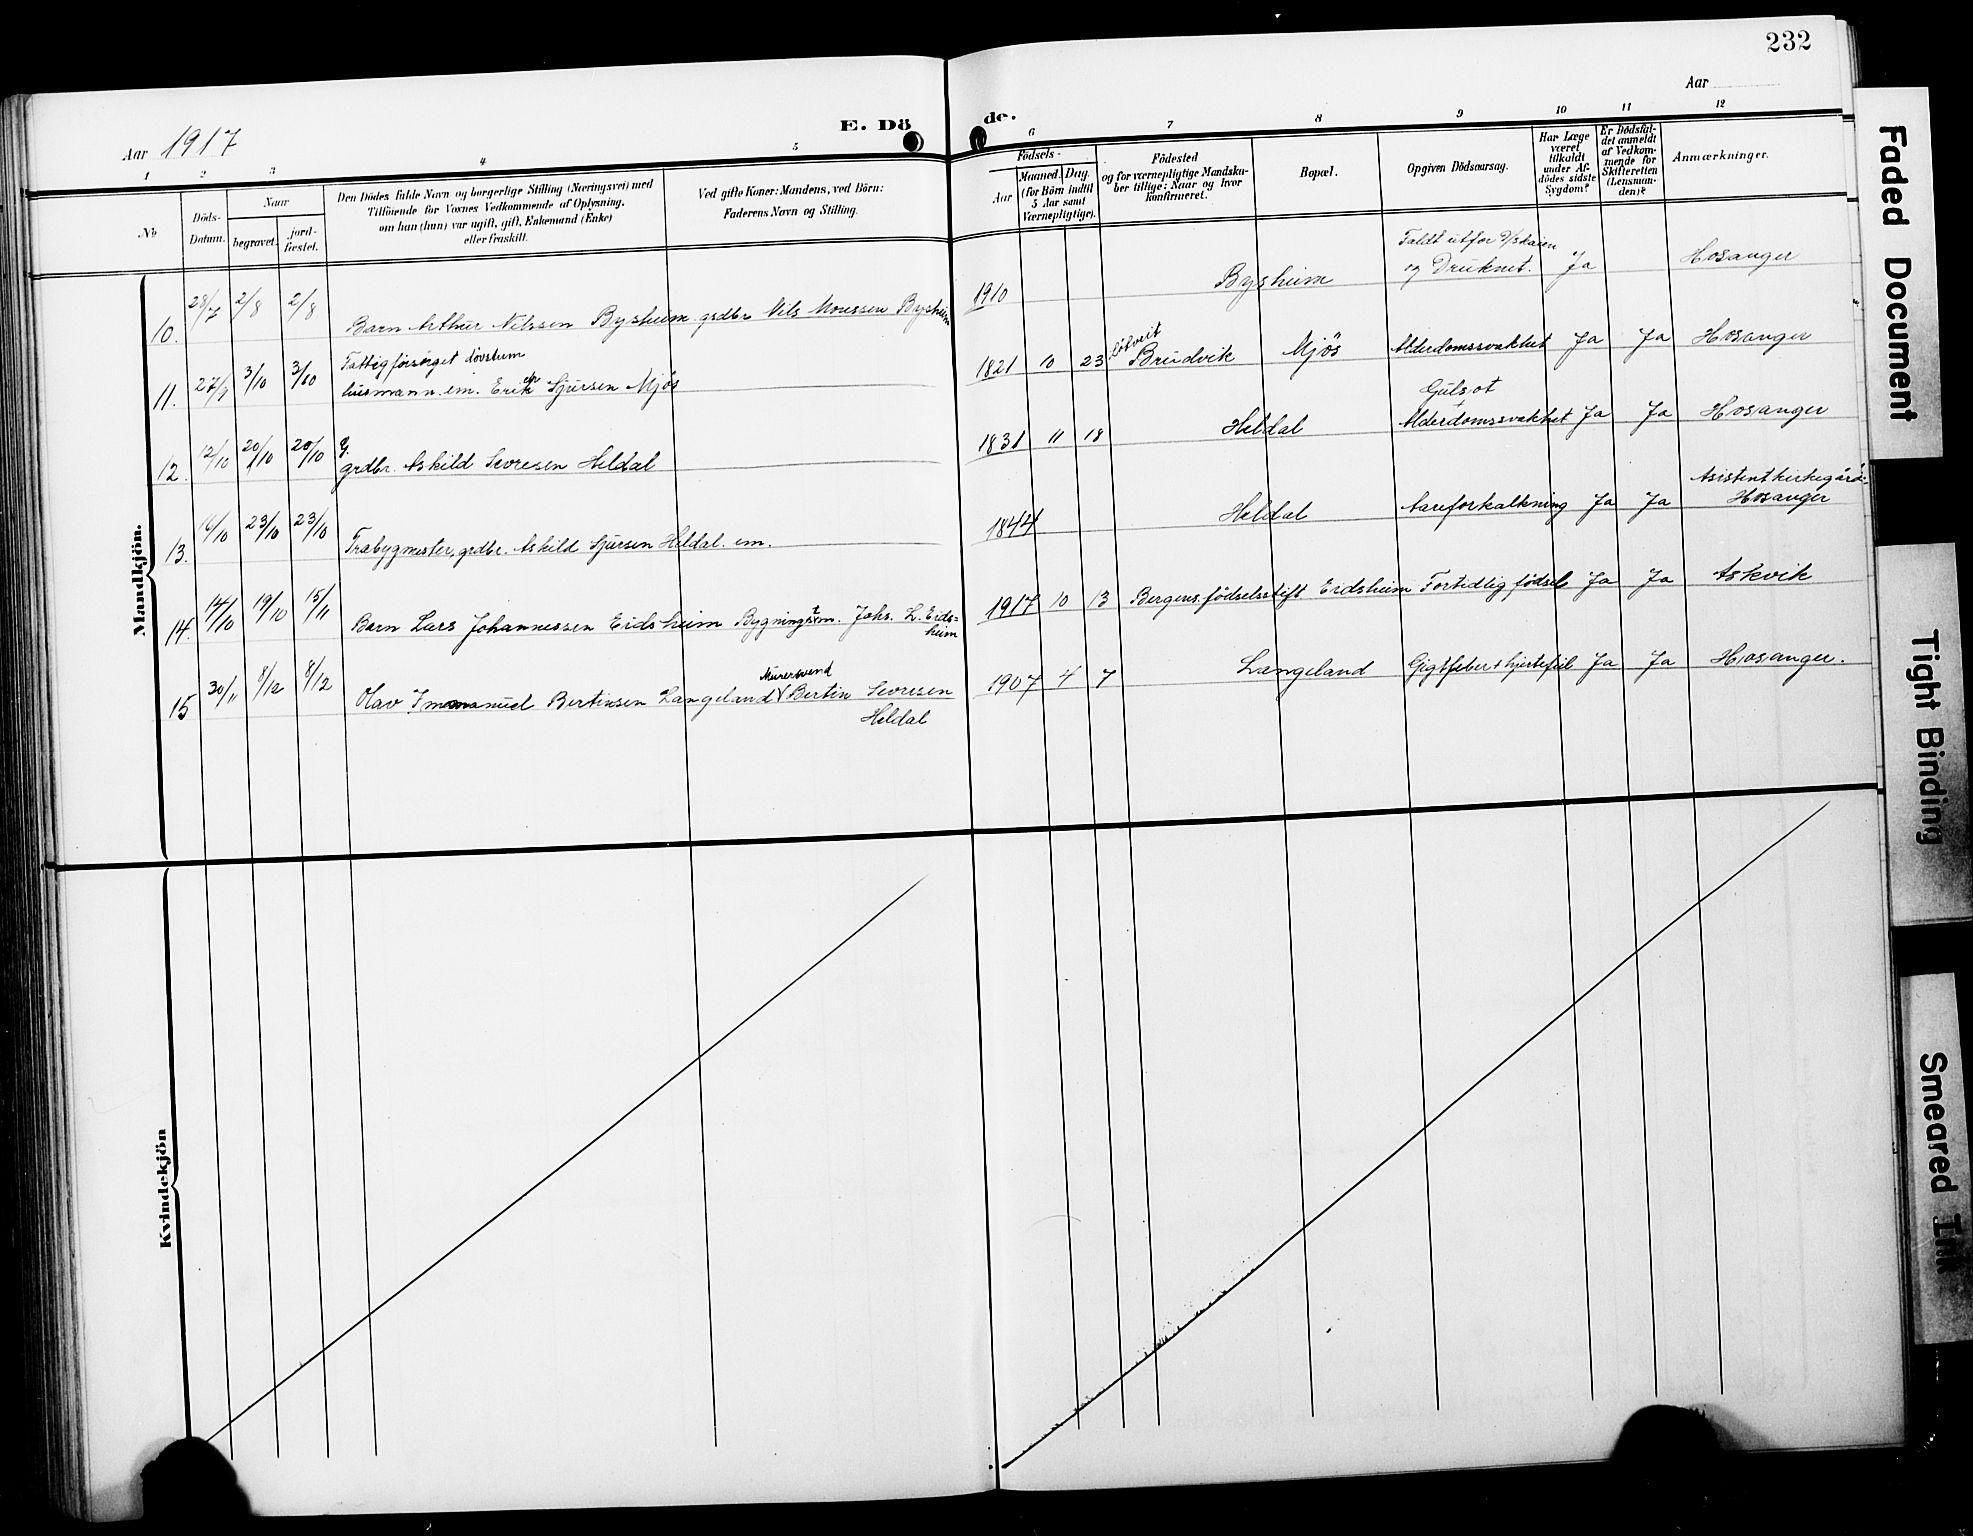 232
Aar
Aar 1917
E. Döde.
1 2 3 4 5 6 7 8 9 10 11 12
No
Döds-Datum.
Naar
begravet.
jord-fæstet.
Den Dödes fulde Navn og borgerlige Stilling (Næringsvei) med
Tilföiende for Voxnes Vedkommende af Oplysning,
om han (hun) var ugift, gift, Enkemand (Enke)
eller fraskilt.
Ved gifte Koner: Mandens, ved Börn:
Faderens Navn og Stilling.
Födsels-
Aar
Maaned. Dag.
(for Börn indtil
5 Aar samt
Værnepligtige).
Födested
og for værnepligtige Mandskaber tillige: Naar og hvor
konfirmeret.
Bopæl.
Opgiven Dödsaarsag.
Har Læge
været
tilkaldt
under Afdödes sidste
Sygdom?
Er Dödsfaldet anmeldt
af Vedkommende for
Skifteretten
(Lensmanden)?
Anmærkninger.
Mandkjön.
10. 28/7 2/8 2/8 Barn Arthur Nilssen Bysheim grdbr Nils Monssen Bysheim 1910 Bysheim Faldt utfor kaien og Druknet. Ja Hosanger
11. 27/9 3/10 3/10 Fattigforsørget døvstum husmann. em. Erik Sjursen Mjøs 1821 10 23 Brudvik Mjøs Alderdomssvakhet Ja Ja Hosanger
12. 12/10 20/10 20/10 G. grdbr. Askild Sevresen Heldal 1831 11 18 Heldal Gulsot + Alderdomssvakhet Ja Ja Hosanger
13. 16/10 23/10 23/10 Træbygmester, grdbr. Askild Sjursen Heldal. em. 1844 Heldal Aareforkalkning Ja Ja Asistentkirkegård: Hosanger
14. 14/10 19/10 15/11 Barn Lars Johannessen Eidsheim Bygningstm. Johs. L. Eidsheim 1917 10 13 Bergens fødselsstift Eidsheim Fortidlig fødsel Ja Ja Askvik
15 30/11 8/12 8/12 Olav Immanuel Bertinsen Langeland Murersvend Bertin Sevresen Heldal 1907 4 7 Langeland Gigtfeber + hjertefeil Ja Ja Hosanger.
Kvindekjön
Faded Document
Tight Binding
Smeared Ink